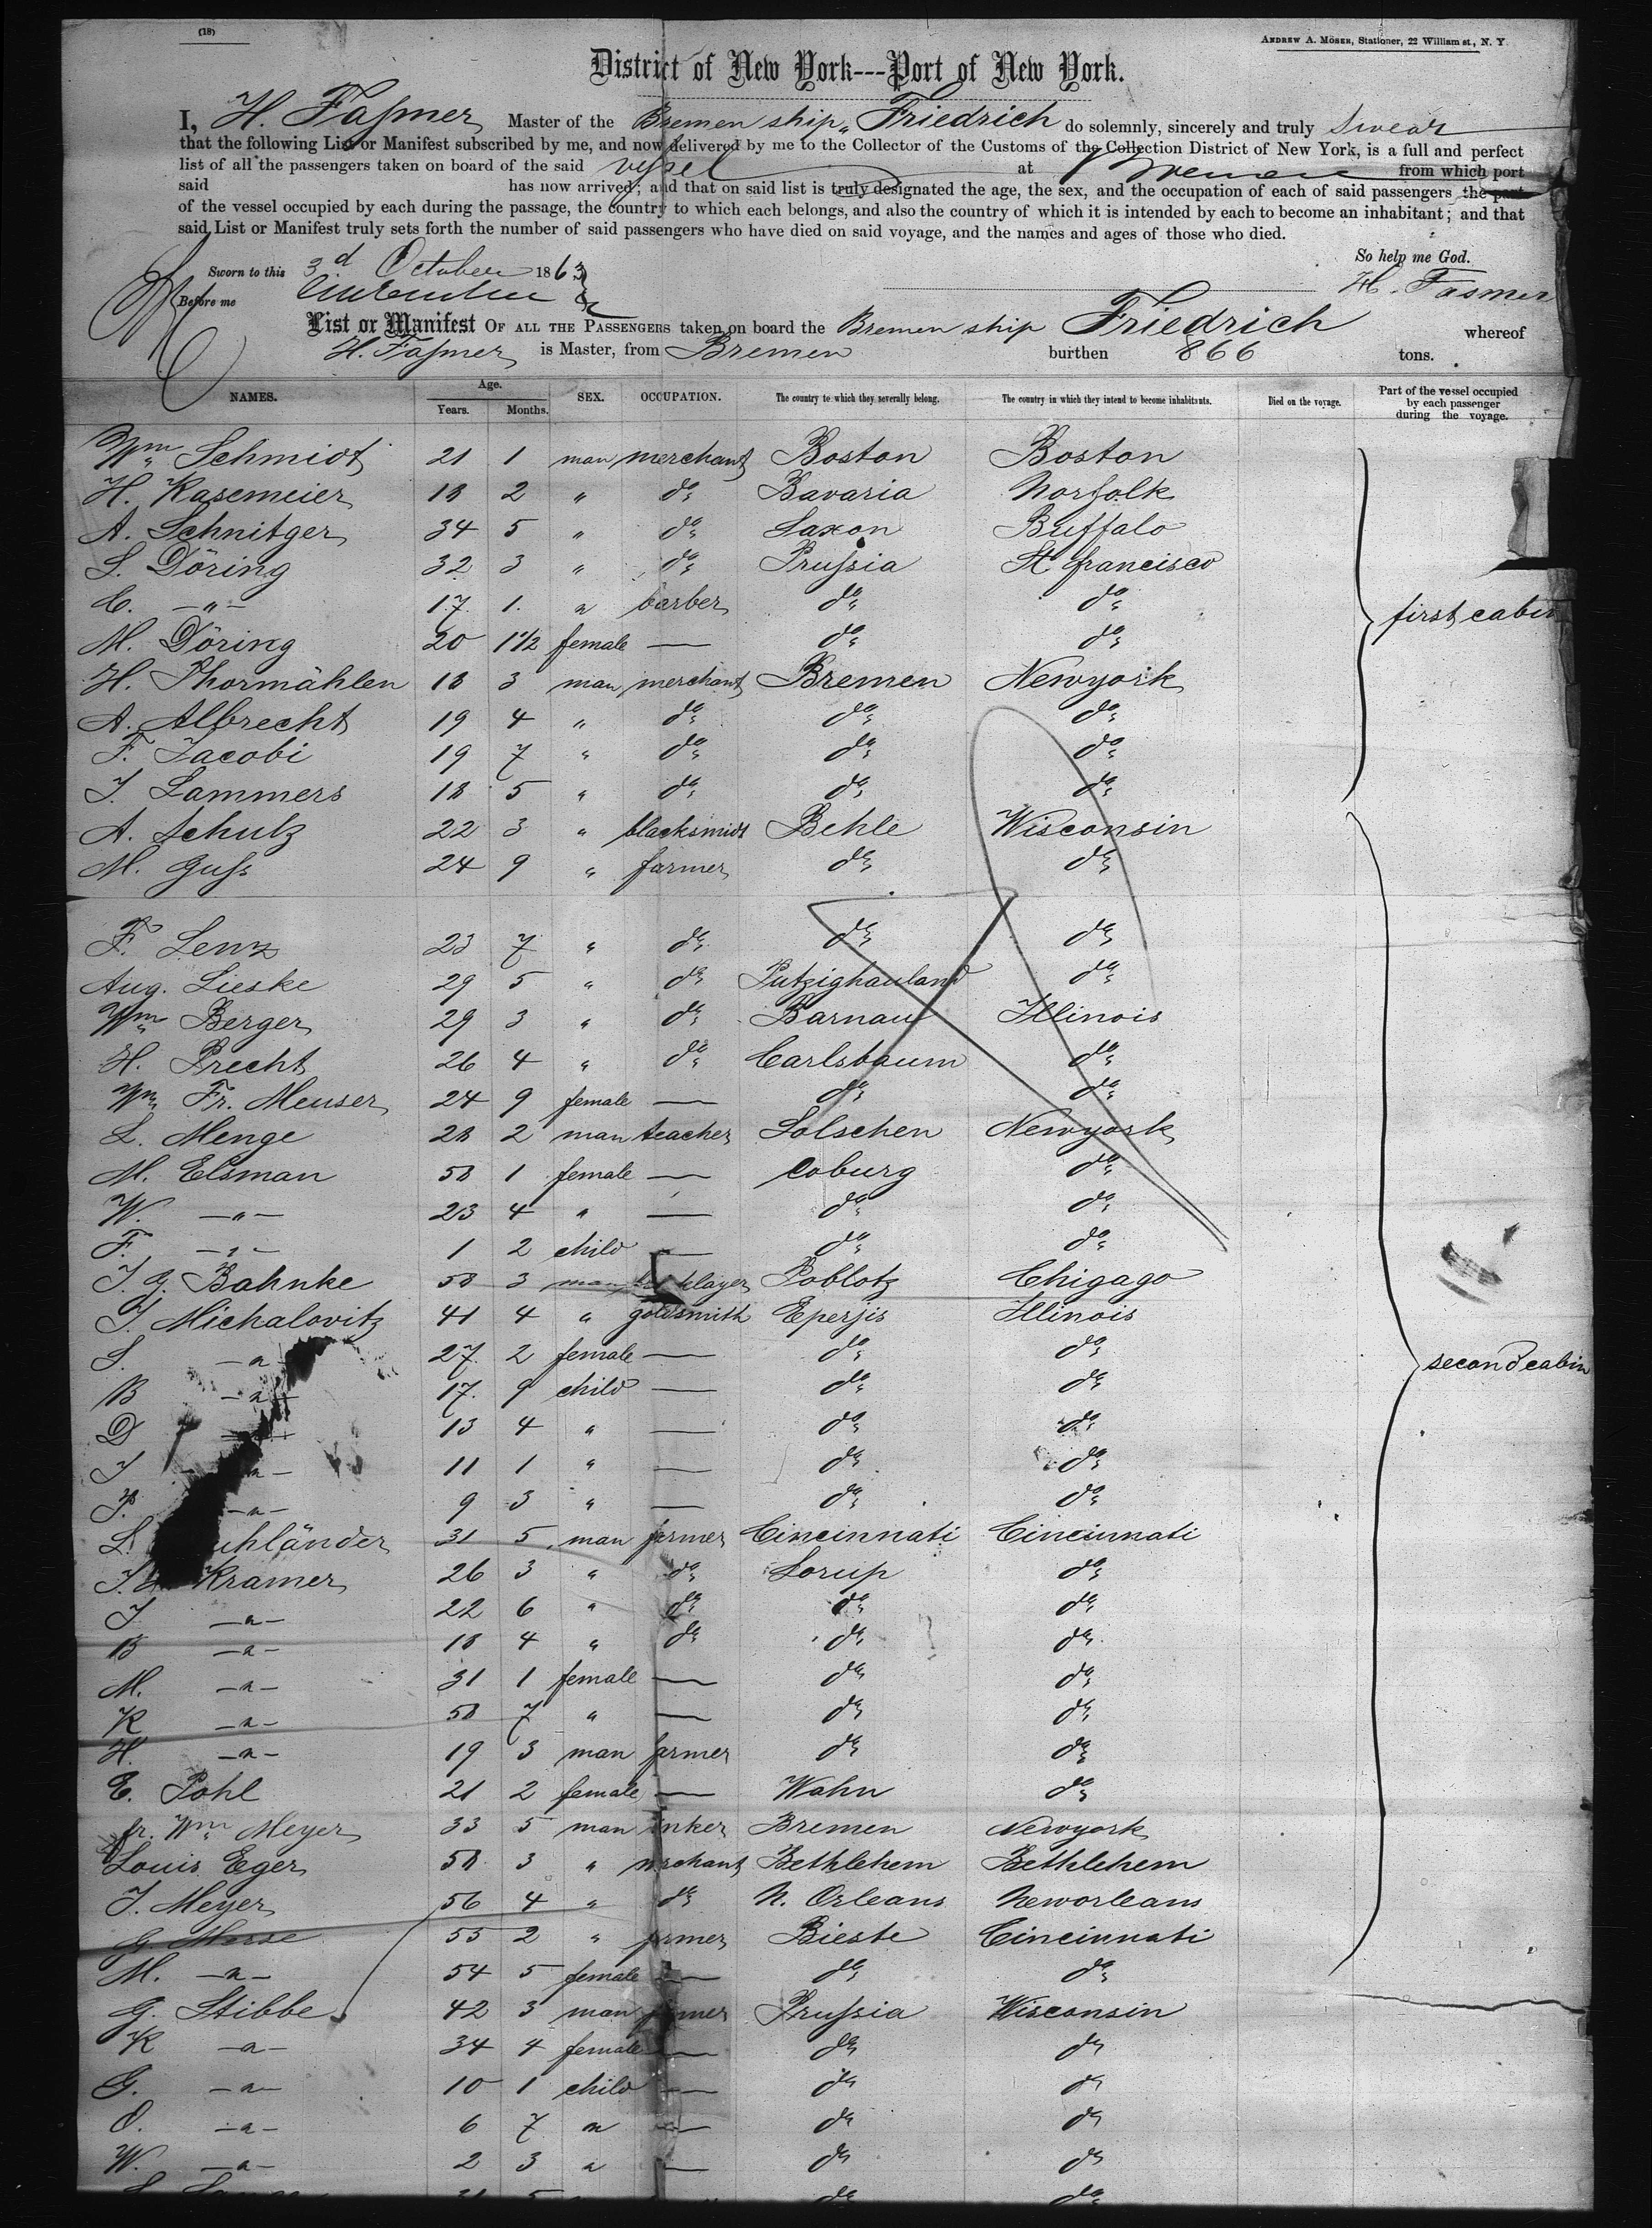 (18)
ANDREW A. MÖSER, Stationer, 22 William st., N. Y.
District of New York---Port of New York.
I, H. Faſmer Master of the Bremen ship „ Friedrich do solemnly, sincerely and truly swear
that the following List or Manifest subscribed by me, and now delivered by me to the Collector of the Customs of the Collection District of New York, is a full and perfect
list of all the passengers taken on board of the said veſsel at Bremen from which port
said has now arrived; and that on said list is truly designated the age, the sex, and the occupation of each of said passengers the part
of the vessel occupied by each during the passage, the country to which each belongs, and also the country of which it is intended by each to become an inhabitant; and that
said List or Manifest truly sets forth the number of said passengers who have died on said voyage, and the names and ages of those who died.
So help me God.
Sworn to this 3d October 1863
H. Fasmer
Before me
List or Manifest OF ALL THE PASSENGERS taken on board the Bremen ship Friedrich whereof
H. Faſmer is Master, from Bremen burthen 866 tons.
NAMES. Age. Years. Months. SEX. OCCUPATION. The country to which they severally belong. The country in which they intend to become inhabitants. Died on the voyage. Part of the vessel occupied by each passenger during the voyage.
Wm Schmidt 21 1 man merchant Boston Boston
H. Kasemeier 18 2 " do Bavaria Norfolk
A. Schnitger 34 5 " do Saxon Buffalo
S. Döring 32 3 " do Pruſsia St francisco
C. -"- 17 1 " barber do do first cabin
M. Döring 20 1 1/2 female — do do
H. Thormählen 18 3 man merchant Bremen Newyork
A. Albrecht 19 4 " do do do
F. Jacobi 19 7 " do do do
J. Lammers 18 5 " do do do
A. Schulz 22 3 " blacksmidt Behle Wisconsin
M. Guſs 24 9 " farmer do do
F. Lenz 23 7 " do do do
Aug. Lieske 29 5 " do Putzighauland do
Wm Berger 29 3 " do Barnau Illinois
H. Precht 26 4 " do Carlsbaum do
Wm Fr. Meuser 24 9 female — do do
L. Menge 28 2 man teacher Solschen Newyork
M. Elsman 58 1 female — Coburg do
W. -"- 23 4 " — do do
F. -"- 1 2 child — do do
J. G. Bahnke 58 3 man Poblotz Chigago
J. Michalovitz 41 4 " goldsmith Eperjis Illinois
S. -"- 27 2 female — do do second cabin
B -"- 17 9 child — do do
D -"- 13 4 " — do do
J -"- 11 1 " — do do
P. -"- 9 3 " — do do
L. uhländer 31 5 man farmer Cincinnati Cincinnati
J. Kramer 26 3 " do Lorup do
J -"- 22 6 " do do do
B -"- 18 4 " do do do
M. -"- 31 1 female — do do
K -"- 58 7 " — do do
H. -"- 19 3 man farmer do do
E. Pohl 21 2 female — Wahn do
fr. Wm Meyer 33 5 man inker Bremen Newyork
Louis Eger 58 3 " merchant Bethlehem Bethlehem
J. Meyer 56 4 " do N. Orleans Neworleans
G. Merse 55 2 " farmer Bieste Cincinnati
M. -"- 54 5 female — do do
G. Stibbe 42 3 man farmer Pruſsia Wisconsin
K -"- 34 4 female — do do
G. -"- 10 1 child — do do
O. -"- 6 7 " — do do
W. -"- 2 3 " — do do
do do